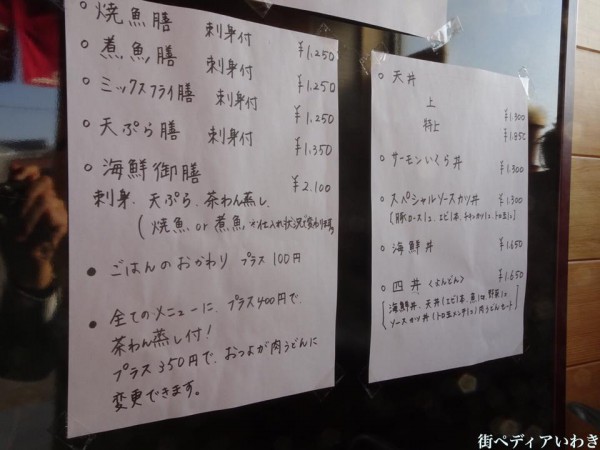 ○ 焼魚膳 刺身付 ¥1,250
○ 煮魚膳 刺身付 ¥1,250
○ ミックスフライ膳 刺身付 ¥1,250
○ 天ぷら膳 刺身付 ¥1,350
○ 海鮮御膳 ¥2,100
刺身、天ぷら、茶わん蒸し、
(焼魚 or 煮魚
● ごはんのおかわり プラス 100円
● 全てのメニューに、プラス400円で、
茶わん蒸し付!
プラス350円で、おつよが肉うどんに
変更できます。
○ 天丼
上 ¥1,300
特上 ¥1,850
○ サーモンいくら丼 ¥1,300
○ スペシャルソースカツ丼 ¥1,300
○ 海鮮丼 ¥1,650
○ 四丼 ¥1,650
海鮮丼、天丼
ソースカツ丼 肉うどんセット
街ペディアいわき